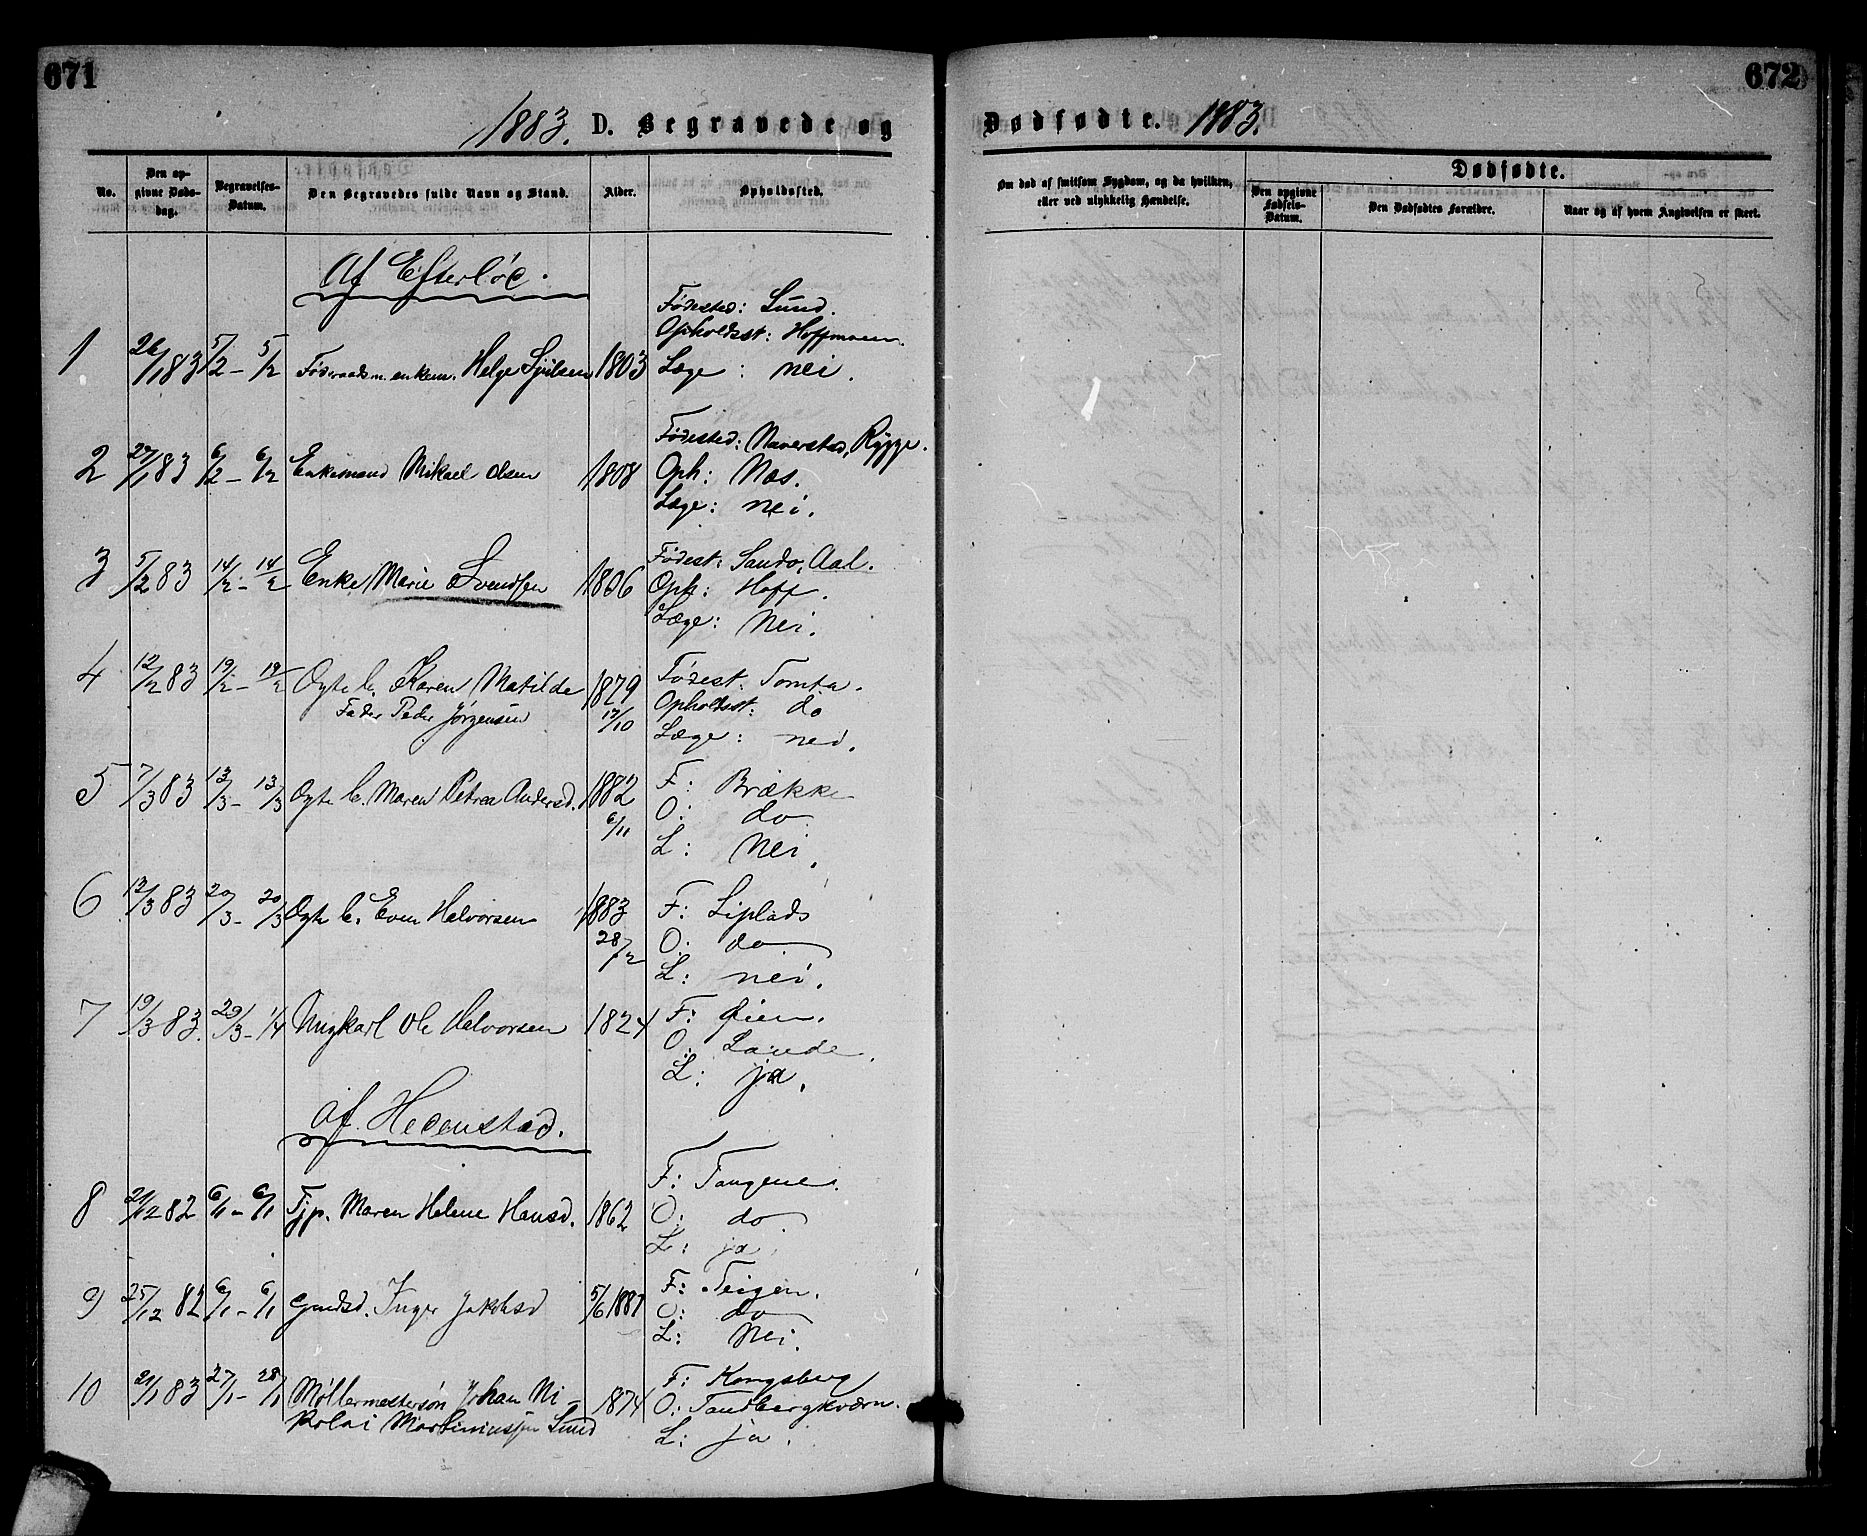 671
1883. D. Begravede og
No. Den opgivne Dødsdag. Begravelses-Datum. Den Begravedes fulde Navn og Stand. Alder. Opholdssted.
Af Efterløt.
Fødested: Lund.
Opholdsst: Hoffmoen.
1 26/1 83 5/2 - 5/2 Føderaadsm. enkem. Helge 1803 Læge: nei.
Fødested: Naverstad, Rygge.
2 27/1 83 6/2 - 6/2 Enkemand Mikael Olsen 1808 Oph: Næs.
Læge: nei.
3 5/2 83 14/2 - 14/2 Enke Marie Svendsen 1806 Fødest: Sando, Aal.
Oph: Hoff.
Læge: Nei.
4 12/2 83 19/2 - 19/2 Ægte b. Karen Matilde 1879 Fødest: Tomta.
Fader Peder Jørgensen 17/10 Opholdsst: do
Læge: nei.
5 7/3 83 13/3 - 13/3 Ægte b. Maren Petrea Andersd. 1882 F: Brække
6/11 O: do
L: Nei.
6 12/3 83 20/3 - 20/3 Ægte b. Even Halvorsen 1883 F: Liplads
28/2 O: do
L: nei.
7 19/3 83. 29/3 - 1/4 Ungkarl Ole Halvorsen 1824 F: Øien.
O: Lande.
L: ja.
Af Hedenstad.
F: Tangene.
8 21/12 82 6/1 - 6/1 Tjp. Maren Helene Hansd. 1862 O: do.
L: ja.
9 25/12 82 6/1 - 6/1 Gmdsd. Inger Jakobsd 5/6 1881 F: Teigen.
O: do
L: Nei.
10 21/1 83 27/1 - 28/1 Møllermestersøn Johan Ni- 1874 F: Kongsberg
kolai Martiniussen Lund O: Sandbergkværn.
L: ja.
672
Dødfødte. 1883.
Om død af smitsom Sygdom, og da hvilken, eller ved ulykkelig Hændelse.
Dødfødte.
Den opgivne Fødsels-Datum. Den Dødfødtes Forældre. Naar og af hvem Angivelsen er skeet.